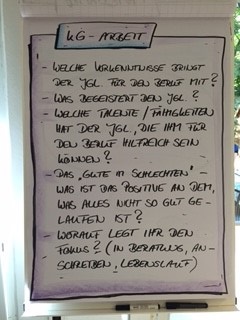 KG-ARBEIT
- WELCHE VORKENNTNISSE BRINGT
DER JGL. FÜR DEN BERUF MIT?
- WAS BEGEISTERT DEN JGL.?
- WELCHE TALENTE/FÄHIGKEITEN
HAT DER JGL., DIE IHM FÜR
DEN BERUF HILFREICH SEIN
KÖNNEN?
- DAS „GUTE IM SCHLECHTEN" -
WAS IST DAS POSITIVE AN DEM,
WAS ALLES NICHT SO GUT GE-
LAUFEN IST?
- WORAUF LEGT IHR DEN
FOKUS? (IN BERATUNG, AN-
SCHREIBEN, LEBENSLAUF)